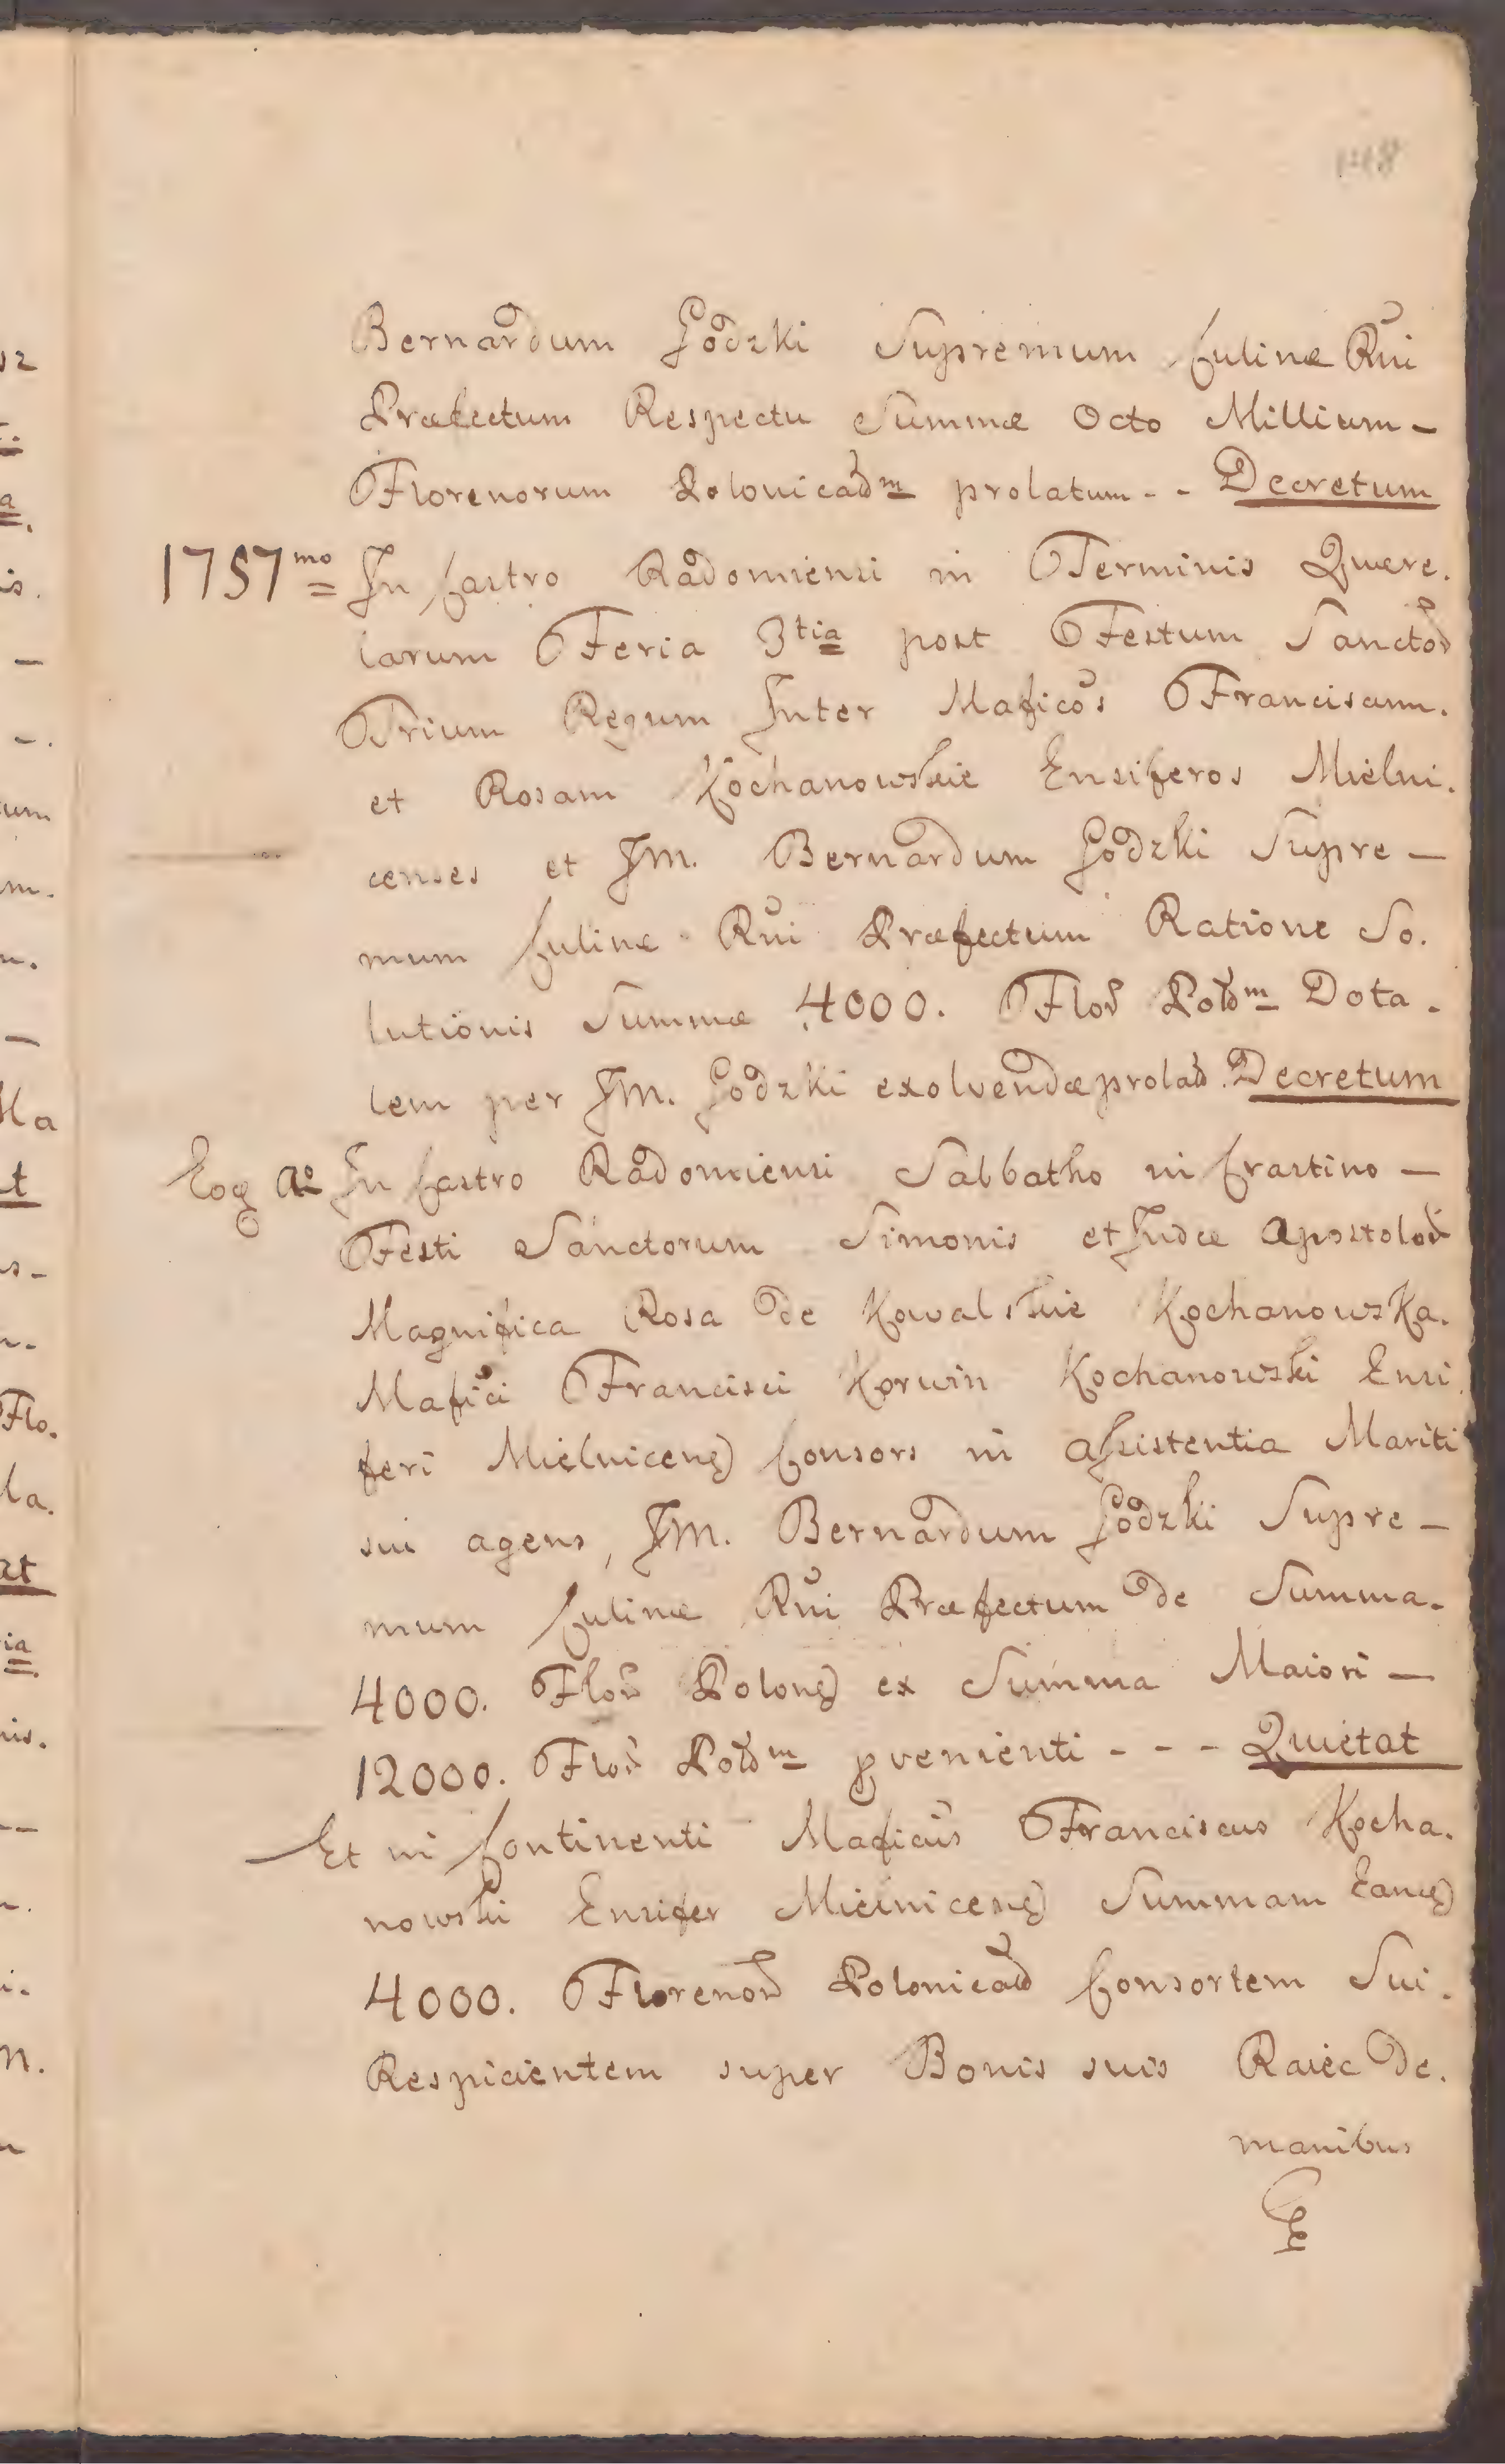 Bernardum Godzki Supremum Culinæ Rñi
Præfectum Respectu Summæ Octo Millium -
Florenorum Polonicalium prolatum - - Decretum
1757mo In Castro Radomiensi in Terminis Quere.
larum Feria 3tia post Festum Sanctor
Trium Regum Inter Mafìcos Franciscum.
et Rosam Kochanowskie Ensiferos Mielni.
censes et JM. Bernardum Godzki Supre -
mum Culinæ Rñi Præfectum Ratione So.
lutionis Summæ 4000. Flor Polm Dota.
lem per JM. Godzki exolvendæ prolat. Decretum
Eoq Ao In Castro Radomiensi Sabbatho in Crastino -
Festi Sanctorum Simonis et Judæ Apostolor
Magnifica Rosa de Kowalskie Kochanowska.
Mafici Francisci Korwin Kochanowski Ensi
feri Mielnicens Consors in assistentia Mariti
sui agens, JM. Bernardum Godzki Supre -
mum Culinæ Rñi Præfectum de Summa.
4000. Flor Polon ex Summa Maiori -
12000. Flor Polm pvenienti - - - Quietat
Et in Continenti Maficus Franciscus Kocha.
nowski Ensifer Mielnicens Summam Eand
4000. Florenor Polonical Consortem Sui.
Respicientem super Bonis suis Raiec de.
manibus